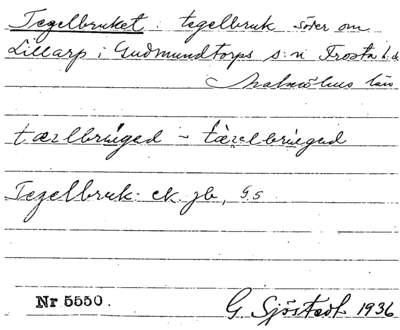 Tegelbruket: tegelbruk söder om
Lillarp i Gudmundtorps s:n Frosta h:d
Malmöhus län
tæglbrueged - tæglbrueged
Tegelbruk ek jb, GS
Nr 5550.
G. Sjöstedt 1936